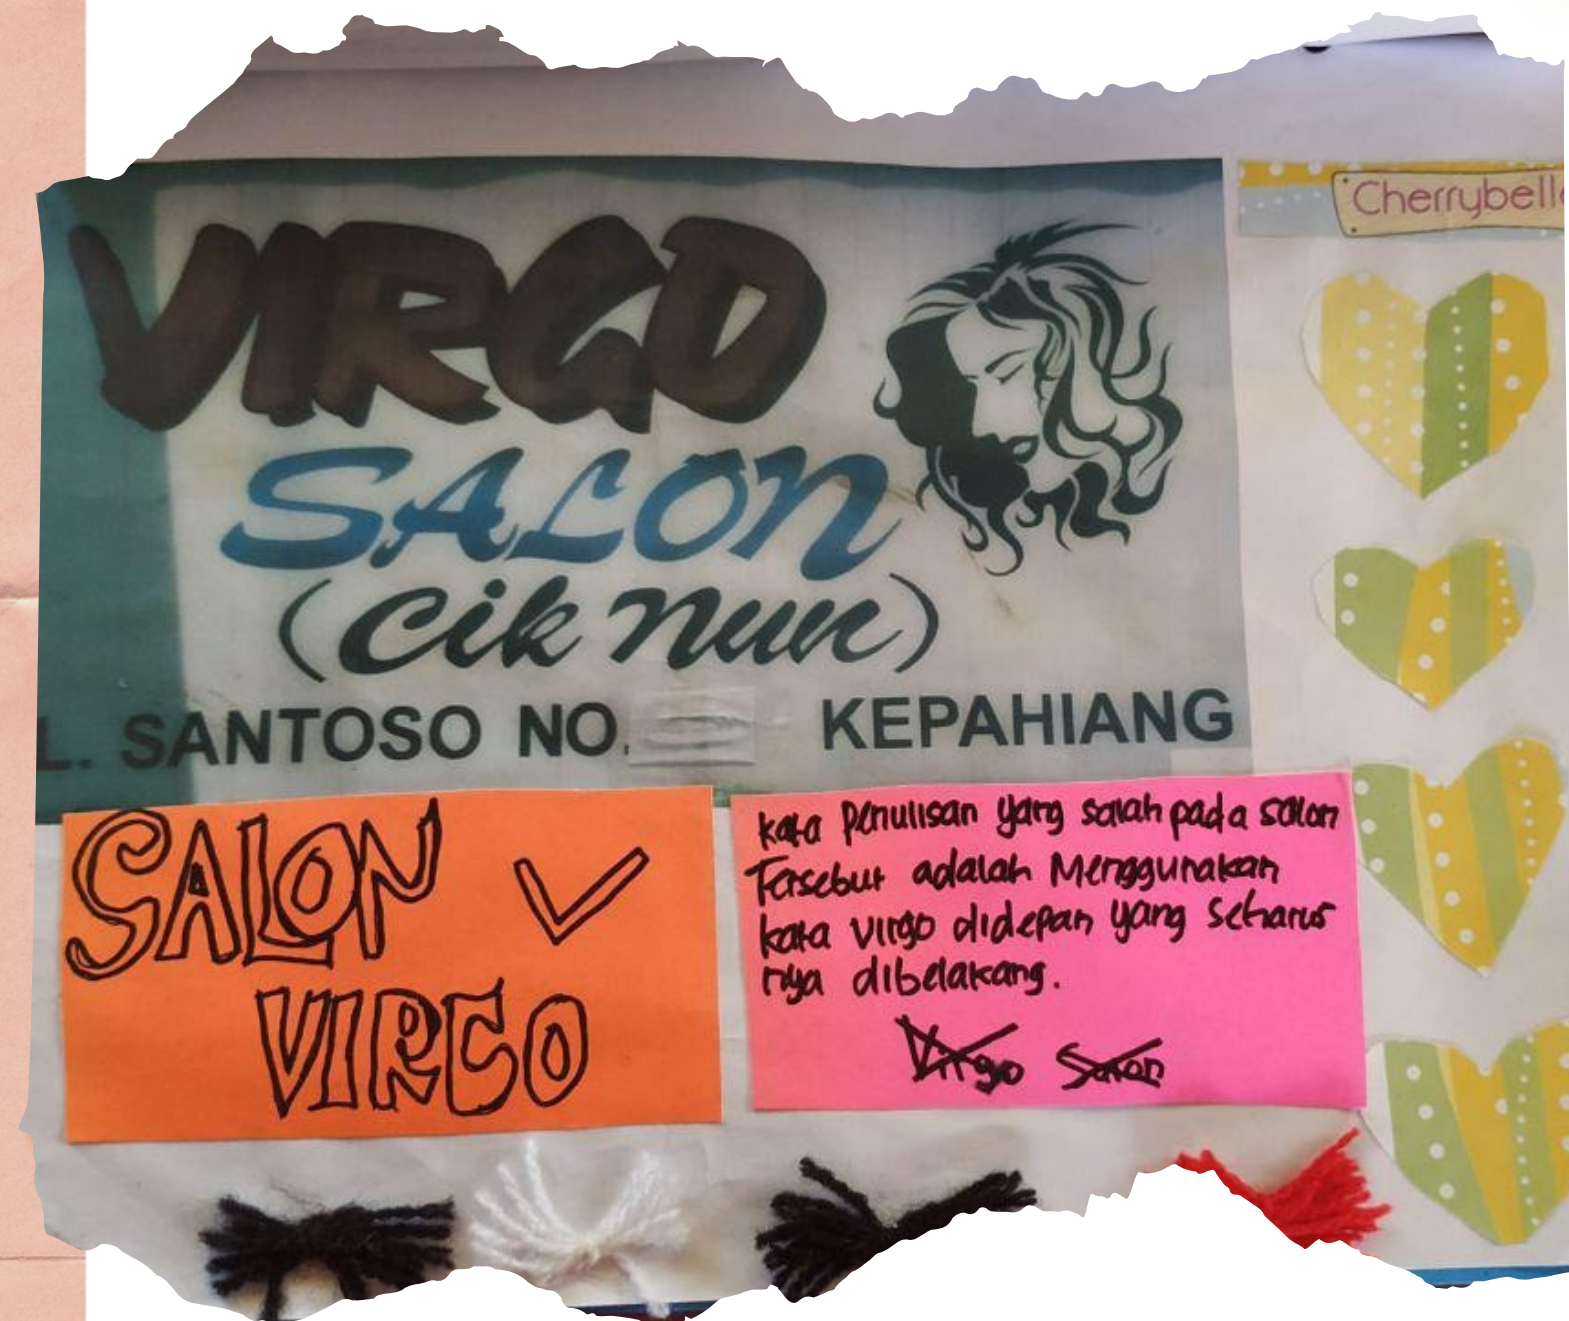 VIRGO
SALON
(Cik Nun)
L. SANTOSO NO. KEPAHIANG
Cherrybell
SALON
VIRGO
kata penulisan yang salah pada salon
Tersebut adalah Menggunakan
kata virgo didepan yang seharus
nya dibelakang.
Virgo Salon